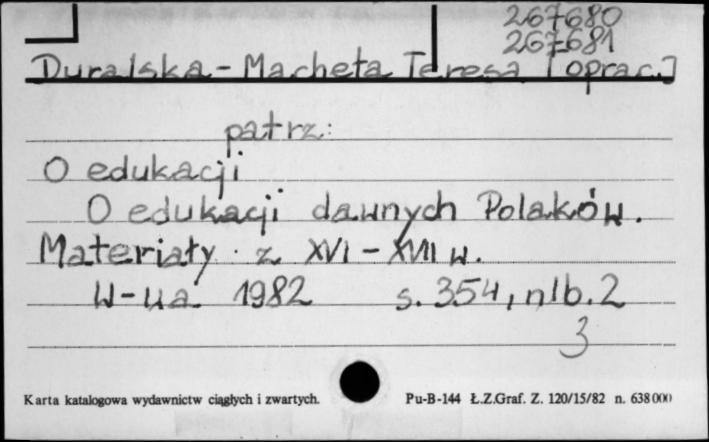 267680
267681
Duralska-Macheta Teresa [oprac.]
patrz:
O edukacji
O edukacji dawnych Polaków.
Materiały z XVI-XVII w.
W-wa 1982 s. 354, nlb. 2
3
Karta katalogowa wydawnictw ciągłych i zwartych. Pu-B-144 Ł.Z.Graf. Z. 120/15/82 n. 638000